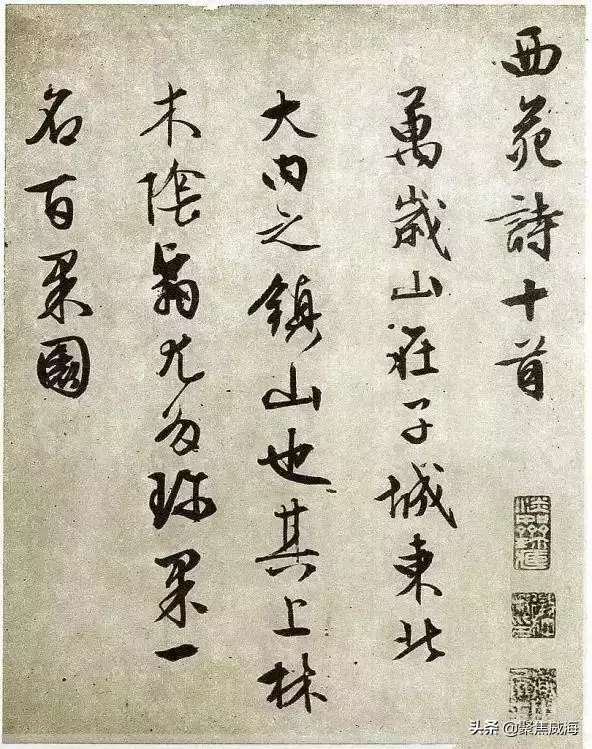 西苑詩十首
萬歲山在子城東北
大内之鎮山也其上林
木陰翳尤多珍果一
名百果園
头条 @聚焦威海